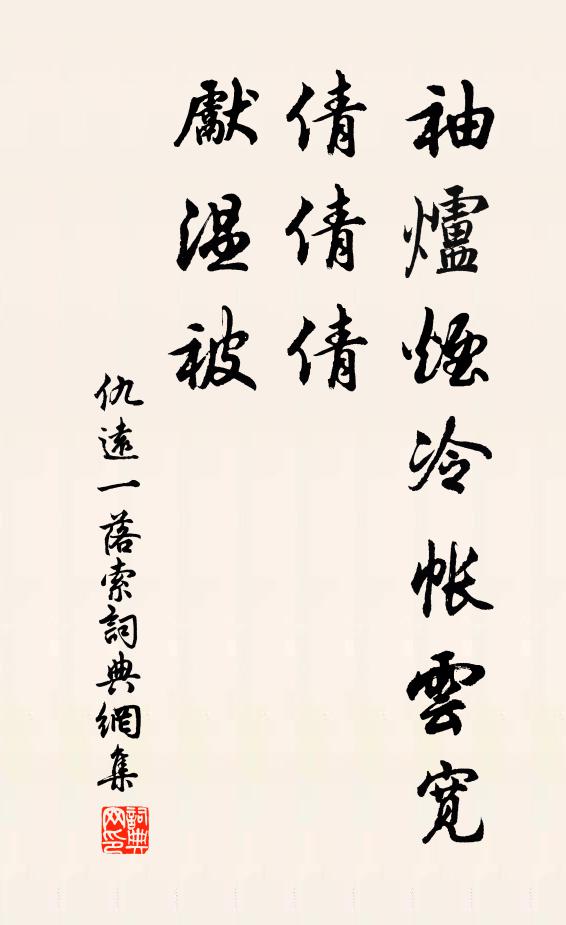 袖爐煙冷帳雲寬
倩倩倩
獻溫被
仇遠一落索詞典網集
詞典
网印